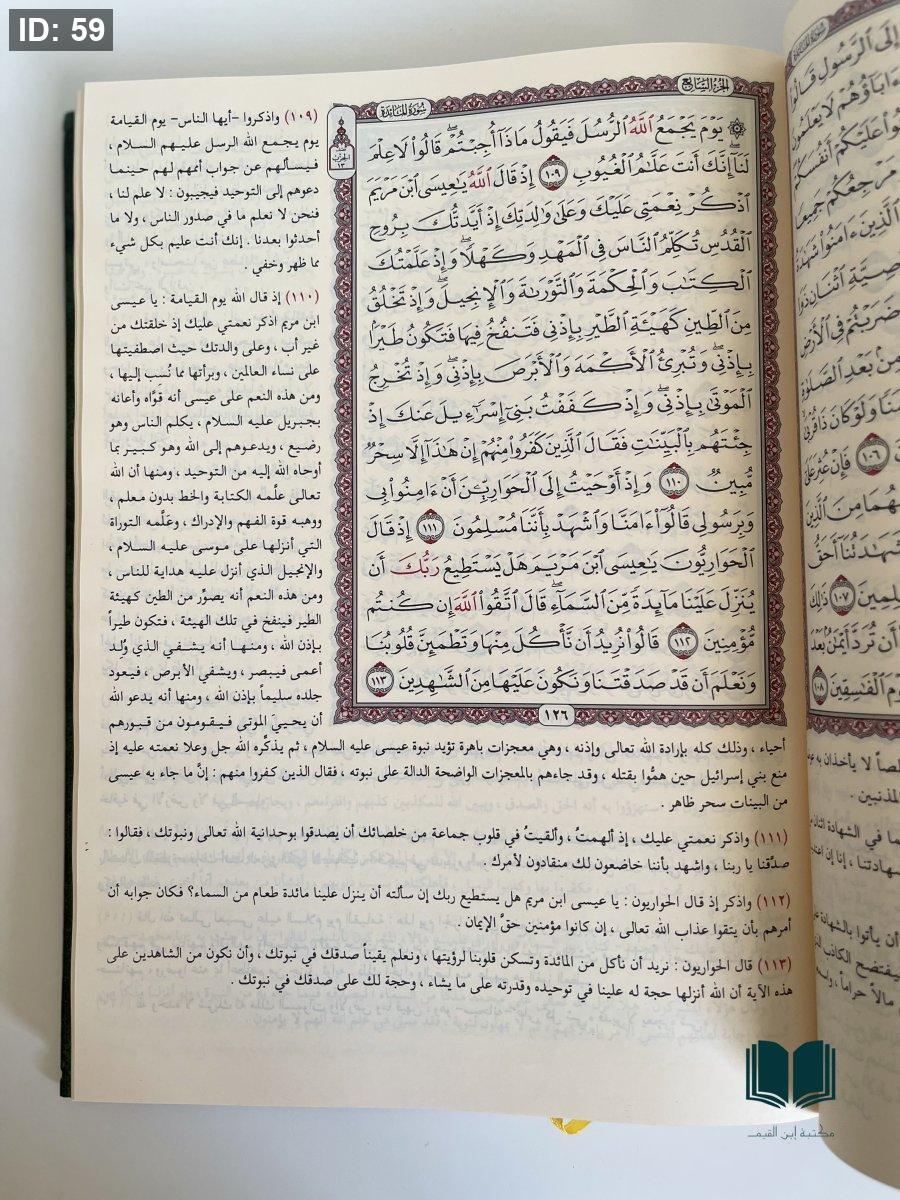 ID: 59
الجزء السابع
سورة المائدة
۞ يَوۡمَ يَجۡمَعُ ٱللَّهُ ٱلرُّسُلَ فَيَقُولُ مَاذَآ أُجِبۡتُمۡۖ قَالُواْ لَا عِلۡمَ
لَنَآۖ إِنَّكَ أَنتَ عَلَّٰمُ ٱلۡغُيُوبِ ١٠٩ إِذۡ قَالَ ٱللَّهُ يَٰعِيسَى ٱبۡنَ مَرۡيَمَ
ٱذۡكُرۡ نِعۡمَتِي عَلَيۡكَ وَعَلَىٰ وَٰلِدَتِكَ إِذۡ أَيَّدتُّكَ بِرُوحِ
ٱلۡقُدُسِ تُكَلِّمُ ٱلنَّاسَ فِي ٱلۡمَهۡدِ وَكَهۡلٗاۖ وَإِذۡ عَلَّمۡتُكَ
ٱلۡكِتَٰبَ وَٱلۡحِكۡمَةَ وَٱلتَّوۡرَىٰةَ وَٱلۡإِنجِيلَۖ وَإِذۡ تَخۡلُقُ
مِنَ ٱلطِّينِ كَهَيۡـَٔةِ ٱلطَّيۡرِ بِإِذۡنِي فَتَنفُخُ فِيهَا فَتَكُونُ طَيۡرَۢا
بِإِذۡنِيۖ وَتُبۡرِئُ ٱلۡأَكۡمَهَ وَٱلۡأَبۡرَصَ بِإِذۡنِيۖ وَإِذۡ تُخۡرِجُ
ٱلۡمَوۡتَىٰ بِإِذۡنِيۖ وَإِذۡ كَفَفۡتُ بَنِيٓ إِسۡرَٰٓءِيلَ عَنكَ إِذۡ
جِئۡتَهُم بِٱلۡبَيِّنَٰتِ فَقَالَ ٱلَّذِينَ كَفَرُواْ مِنۡهُمۡ إِنۡ هَٰذَآ إِلَّا سِحۡرٞ
مُّبِينٞ ١١٠ وَإِذۡ أَوۡحَيۡتُ إِلَى ٱلۡحَوَارِيِّـۧنَ أَنۡ ءَامِنُواْ بِي
وَبِرَسُولِي قَالُوٓاْ ءَامَنَّا وَٱشۡهَدۡ بِأَنَّنَا مُسۡلِمُونَ ١١١ إِذۡ قَالَ
ٱلۡحَوَارِيُّونَ يَٰعِيسَى ٱبۡنَ مَرۡيَمَ هَلۡ يَسۡتَطِيعُ رَبُّكَ أَن
يُنَزِّلَ عَلَيۡنَا مَآئِدَةٗ مِّنَ ٱلسَّمَآءِۖ قَالَ ٱتَّقُواْ ٱللَّهَ إِن كُنتُم
مُّؤۡمِنِينَ ١١٢ قَالُواْ نُرِيدُ أَن نَّأۡكُلَ مِنۡهَا وَتَطۡمَئِنَّ قُلُوبُنَا
وَنَعۡلَمَ أَن قَدۡ صَدَقۡتَنَا وَنَكُونَ عَلَيۡهَا مِنَ ٱلشَّٰهِدِينَ ١١٣
١٢٦
(١٠٩) واذكروا -أيها الناس- يوم القيامة
يوم يجمع الله الرسل عليهم السلام ،
فيسألهم عن جواب أممهم لهم حينما
دعوهم إلى التوحيد فيجيبون : لا علم لنا ،
فنحن لا نعلم ما في صدور الناس ، ولا ما
أحدثوا بعدنا . إنك أنت عليم بكل شيء
مما ظهر وخفي .
(١١٠) إذ قال الله يوم القيامة : يا عيسى
ابن مريم اذكر نعمتي عليك إذ خلقتك من
غير أب ، وعلى والدتك حيث اصطفيتها
على نساء العالمين ، وبرأتها مما نُسب إليها ،
ومن هذه النعم على عيسى أنه قوَّاه وأعانه
بجبريل عليه السلام ، يكلم الناس وهو
رضيع ، ويدعوهم إلى الله وهو كبير بما
أوحاه الله إليه من التوحيد ، ومنها أن الله
تعالى علَّمه الكتابة والخط بدون معلم ،
ووهبه قوة الفهم والإدراك ، وعَلَّمه التوراة
التي أنزلها على موسى عليه السلام ،
والإنجيل الذي أنزل عليه هداية للناس ،
ومن هذه النعم أنه يصوِّر من الطين كهيئة
الطير فينفخ في تلك الهيئة ، فتكون طيراً
بإذن الله ، ومنها أنه يشفي الذي وُلِد
أعمى فيبصر ، ويشفي الأبرص ، فيعود
جلده سليماً بإذن الله ، ومنها أنه يدعو الله
أن يحييَ الموتى فيقومون من قبورهم
أحياء ، وذلك كله بإرادة الله تعالى وإذنه ، وهي معجزات باهرة تؤيد نبوة عيسى عليه السلام ، ثم يذكِّره الله جل وعلا نعمته عليه إذ
منع بني إسرائيل حين همُّوا بقتله ، وقد جاءهم بالمعجزات الواضحة الدالة على نبوته ، فقال الذين كفروا منهم : إنَّ ما جاء به عيسى
من البينات سحر ظاهر .
(١١١) واذكر نعمتي عليك ، إذ ألهمتُ ، وألقيتُ في قلوب جماعة من خلصائك أن يصدقوا بوحدانية الله تعالى ونبوتك ، فقالوا :
صدَّقنا يا ربنا ، واشهد بأننا خاضعون لك منقادون لأمرك .
(١١٢) واذكر إذ قال الحواريون : يا عيسى ابن مريم هل يستطيع ربك إن سألته أن ينزل علينا مائدة طعام من السماء؟ فكان جوابه أن
أمرهم بأن يتقوا عذاب الله تعالى ، إن كانوا مؤمنين حقَّ الإيمان .
(١١٣) قال الحواريون : نريد أن نأكل من المائدة وتسكن قلوبنا لرؤيتها ، ونعلم يقيناً صدقك في نبوتك ، وأن نكون من الشاهدين على
هذه الآية أن الله أنزلها حجة له علينا في توحيده وقدرته على ما يشاء ، وحجة لك على صدقك في نبوتك .
مكتبة إبن القيم